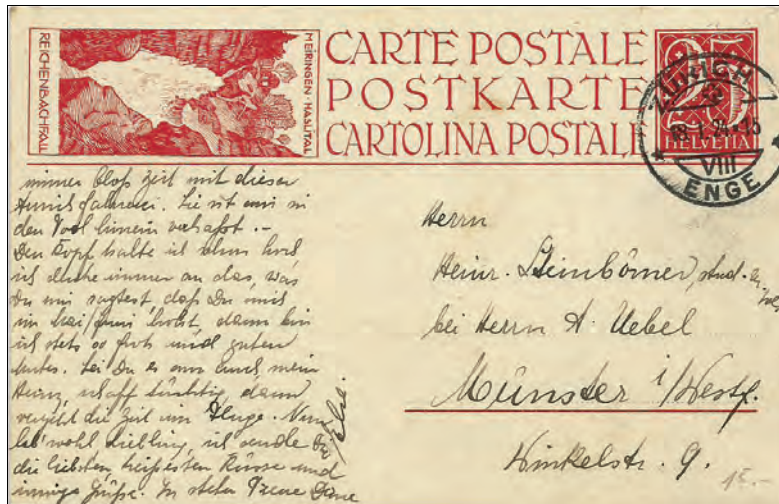 REICHENBACHFALL
MEIRINGEN · HASLITAL
CARTE POSTALE
POSTKARTE
CARTOLINA POSTALE
25
HELVETIA
ZÜRICH
VIII
ENGE
immer bloß Zeit mit dieser
Sie ist mir in
den Tod hinein verhaßt. –
Den Kopf halte ich oben
ich denke immer an das, was
Du mir sagtest, daß Du mich
im Mai/Juni holst, dann bin
ich stets so froh und guten
Mutes. Sei Du es nur auch mein
Heinz, schaff tüchtig, dann
vergeht die Zeit im Fluge. Nun
leb' wohl Liebling, ich sende Dir
die liebsten, heißesten Küsse und
innige Grüße. In steter Treue Deine
Herrn
Heinr. Steinbömer, stud.
bei Herrn A. Uebel
Münster i/Westf.
Winkelstr. 9.
15.-